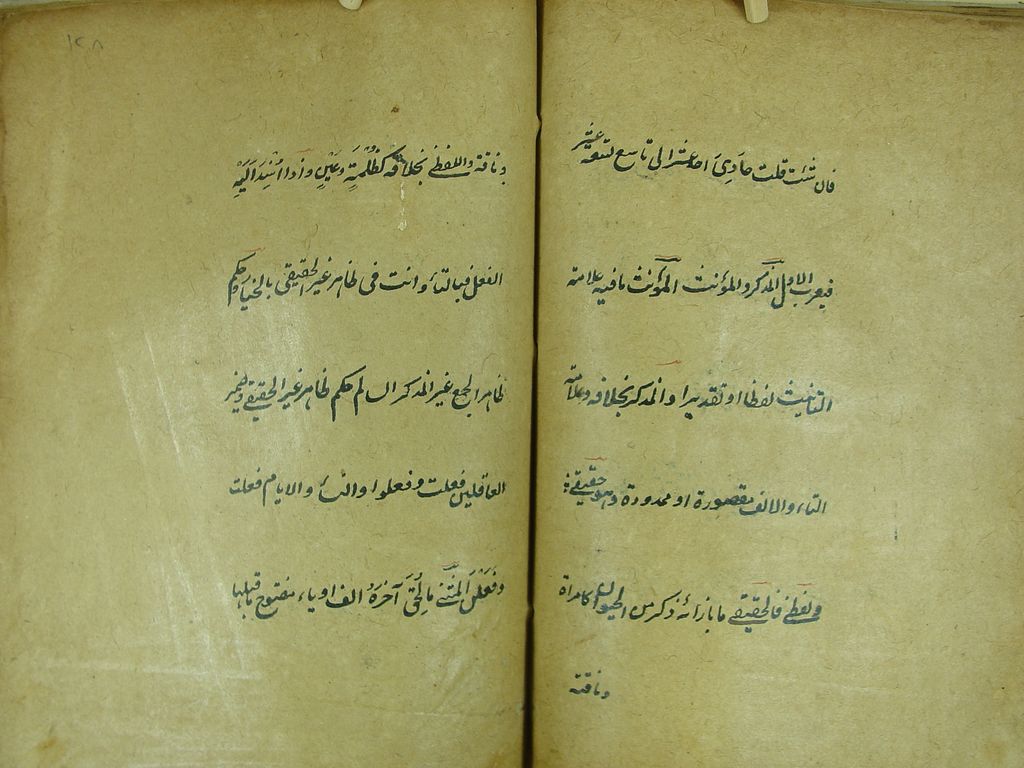 فان شئت قلت حادي احد عشر الى تاسع تسعة عشر
فيعرب الاول المذكر والمؤنث المؤنث ما فيه علامة
التانيث لفظا او تقديرا والمذكر بخلافه وعلامة
التاء والالف مقصورة او ممدودة وهو حقيقي
ولفظي فالحقيقي ما بازائه ذكر من الحيوان كامراة
وناقة
وناقة واللفظي بخلافه كظلمة وعين واذا اسند اليه
الفعل فبالتاء وانت في ظاهر غير الحقيقي بالخيار وحكم
ظاهر الجمع غير المذكر السالم حكم ظاهر غير الحقيقي وضمير
العاقلين فعلت وفعلوا والنساء والايام فعلت
وفعلن المثنى ما لحق آخره الف او ياء مفتوح ما قبلها
١٢٨